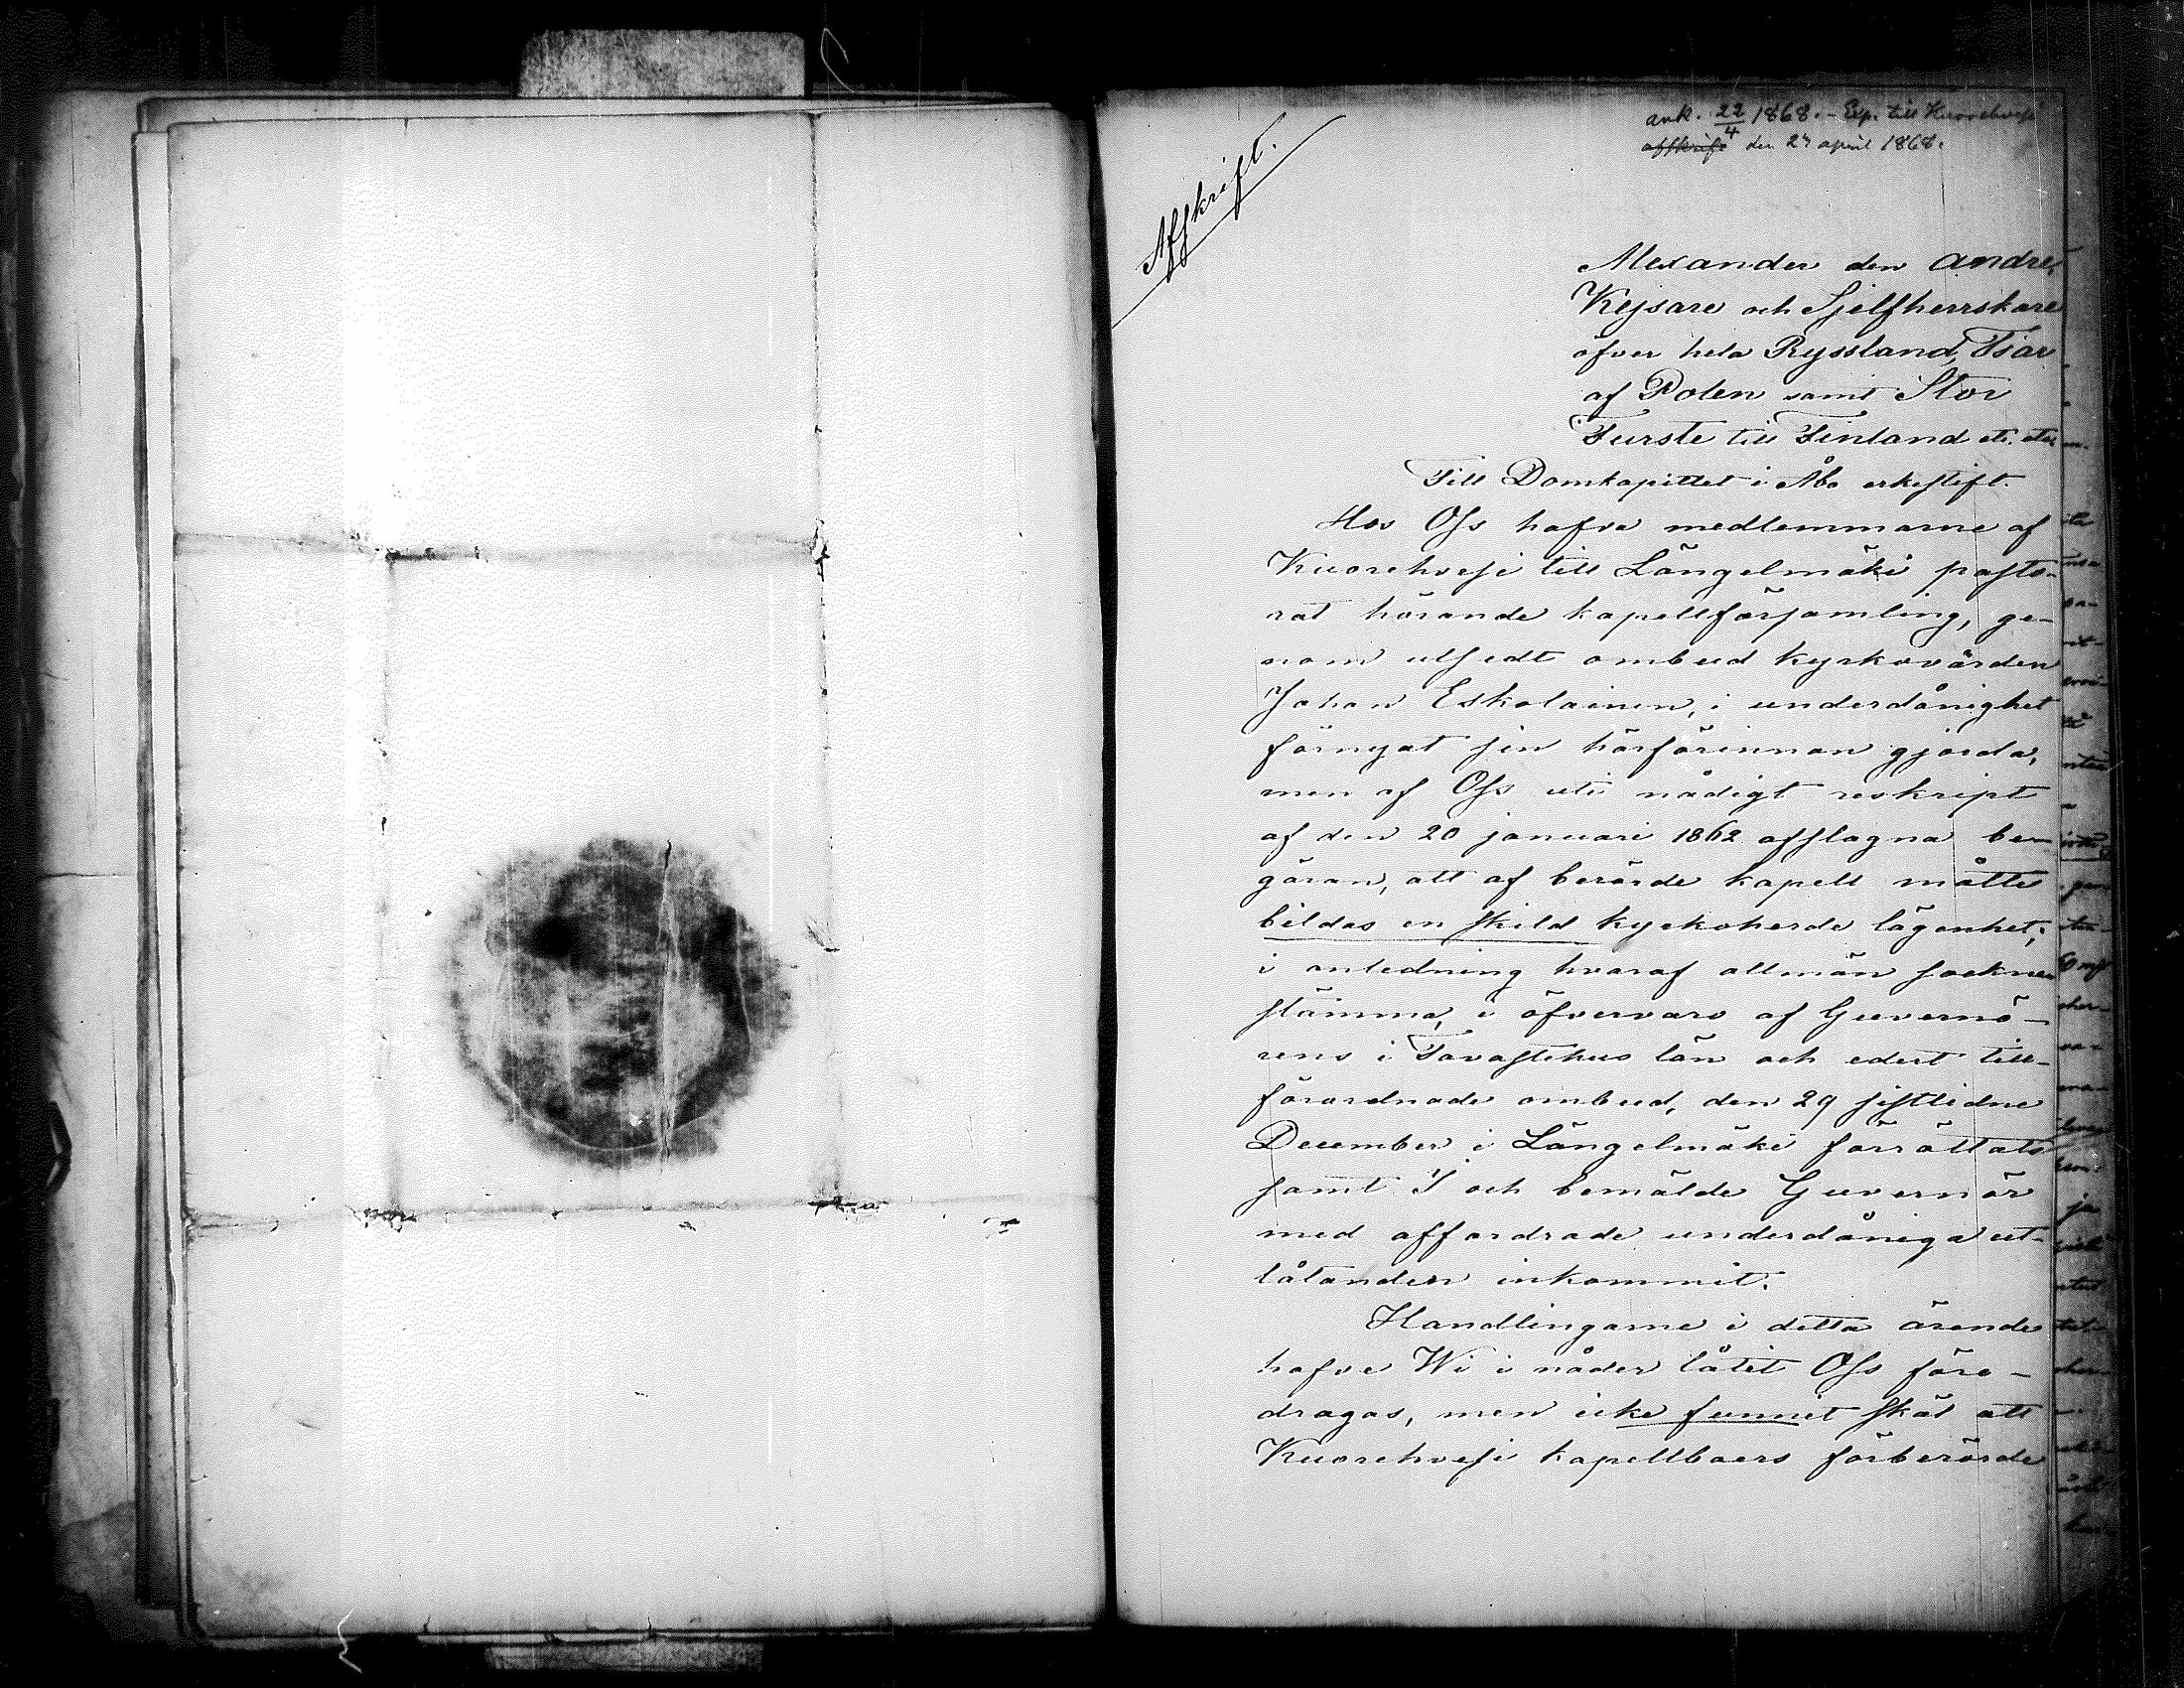 ank. 22/4 1868. - Exp. till Kuorehvesi
affskrift den 27 april 1868.
Affskrift.
Alexander den Andre,
Kejsare och Sjelfherrskare
öfver hela Ryssland, Tsar
af Polen samt Stor
Furste till Finland etc. etc.
Till Domkapitlet i Åbo erkestift.
Hos Oss hafva medlemmarne af
Kuorehvesi till Längelmäki pasto-
rat hörande kapellförsamling, ge-
nom utsedt ombud kyrkovärden
Johan Eskolainen, i underdånighet
förnyat sin härförinnan gjorda,
men af Oss uti nådigt reskript
af den 20 januari 1862 afslagna be-
gäran, att af berörde kapell måtte
bildas en skild kyrkoherde lägenhet;
i anledning hvaraf allmän socknen
stämma, i öfvervaro af Guvernö-
rens i Tavastehus län och edert till-
förordnade ombud, den 29 sistlidne
December i Längelmäki förrättats
samt I och bemälde Guvernör
med affordrade underdåniga ut-
låtanden inkommit.
Handlingarne i detta ärende
hafve Wi i nåder låtit Oss före-
dragas, men icke funnet skäl att
Kuorehvesi kapellboers förberörde